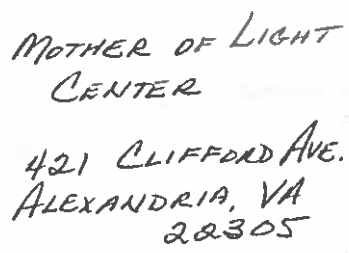 MOTHER OF LIGHT
CENTER
421 CLIFFORD AVE.
ALEXANDRIA, VA
22305